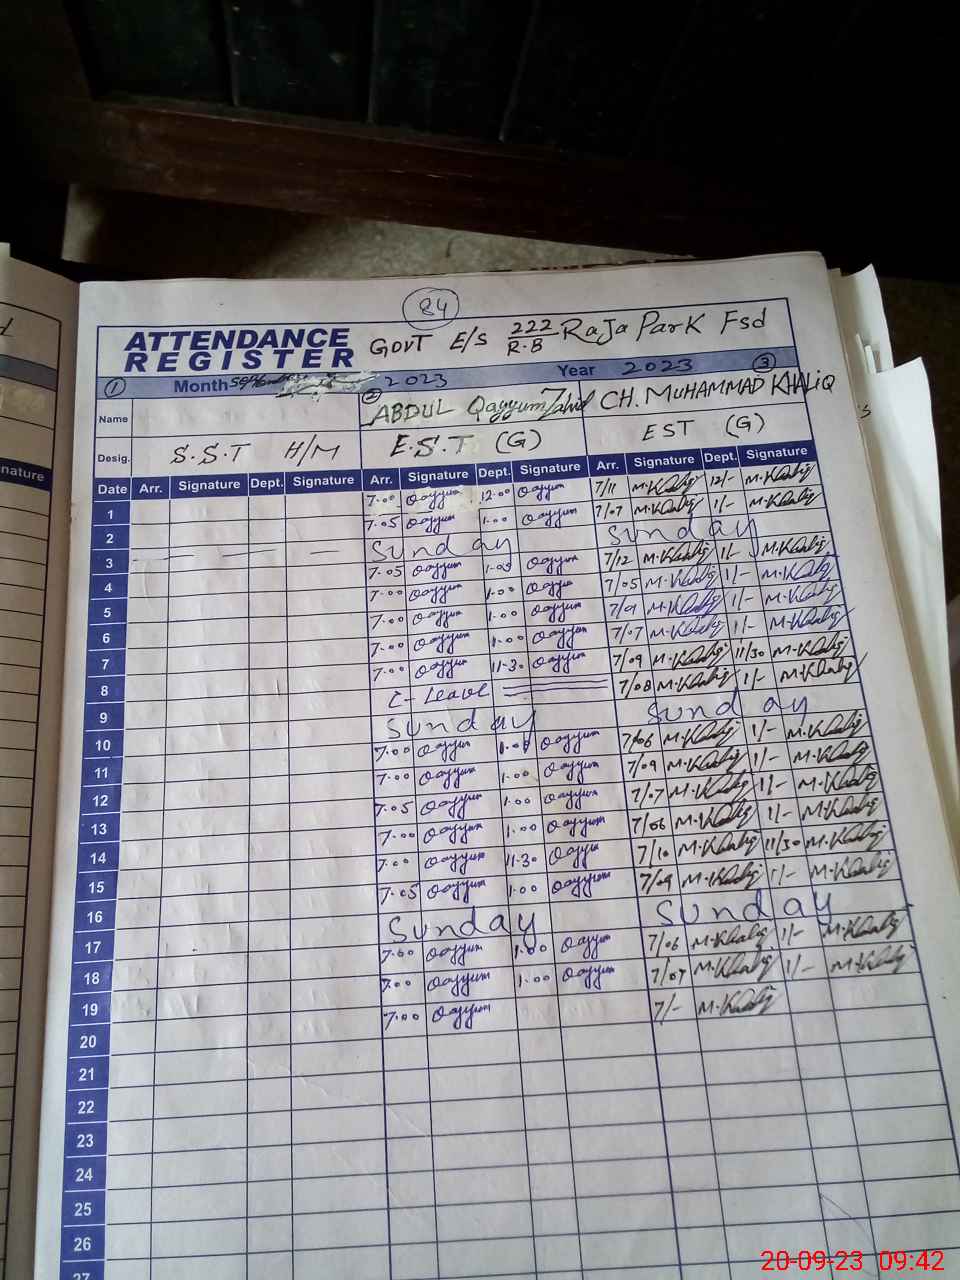 84
ATTENDANCE REGISTER
GOVT E/S 222/R.B RaJa ParK Fsd
1 Month September 2023 Year 2023 3
Name 2 ABDUL Qayyum Zahid CH. MUHAMMAD KHALIQ
Desig. S.S.T H/M E.S.T (G) EST (G)
Date Arr. Signature Dept. Signature Arr. Signature Dept. Signature Arr. Signature Dept. Signature
1 7.00 Qayyum 12.00 Qayyum 7/11 M.Khaliq 12/- M.Khaliq
2 7.05 Qayyum 1.00 Qayyum 7/07 M.Khaliq 1/- M.Khaliq
3 Sunday Sunday
4 7.05 Qayyum 1.05 Qayyum 7/12 M.Khaliq 1/- M.Khaliq
5 7.00 Qayyum 1.00 Qayyum 7/05 M.Khaliq 1/- M.Khaliq
6 7.00 Qayyum 1.00 Qayyum 7/09 M.Khaliq 1/- M.Khaliq
7 7.00 Qayyum 1.00 Qayyum 7/07 M.Khaliq 1/- M.Khaliq
8 7.00 Qayyum 11.30 Qayyum 7/09 M.Khaliq 11/30 M.Khaliq
9 C-Leave 7/08 M.Khaliq 1/- M.Khaliq
10 Sunday Sunday
11 7.00 Qayyum 1.00 Qayyum 7/06 M.Khaliq 1/- M.Khaliq
12 7.00 Qayyum 1.00 Qayyum 7/09 M.Khaliq 1/- M.Khaliq
13 7.05 Qayyum 1.00 Qayyum 7/07 M.Khaliq 1/- M.Khaliq
14 7.00 Qayyum 1.00 Qayyum 7/06 M.Khaliq 1/- M.Khaliq
15 7.00 Qayyum 11.30 Qayyum 7/10 M.Khaliq 11/30 M.Khaliq
16 7.05 Qayyum 1.00 Qayyum 7/09 M.Khaliq 1/- M.Khaliq
17 Sunday Sunday
18 7.00 Qayyum 1.00 Qayyum 7/06 M.Khaliq 1/- M.Khaliq
19 7.00 Qayyum 1.00 Qayyum 7/07 M.Khaliq 1/- M.Khaliq
20 7.00 Qayyum 7/- M.Khaliq
21
22
23
24
25
26
27
nature
20-09-23 09:42